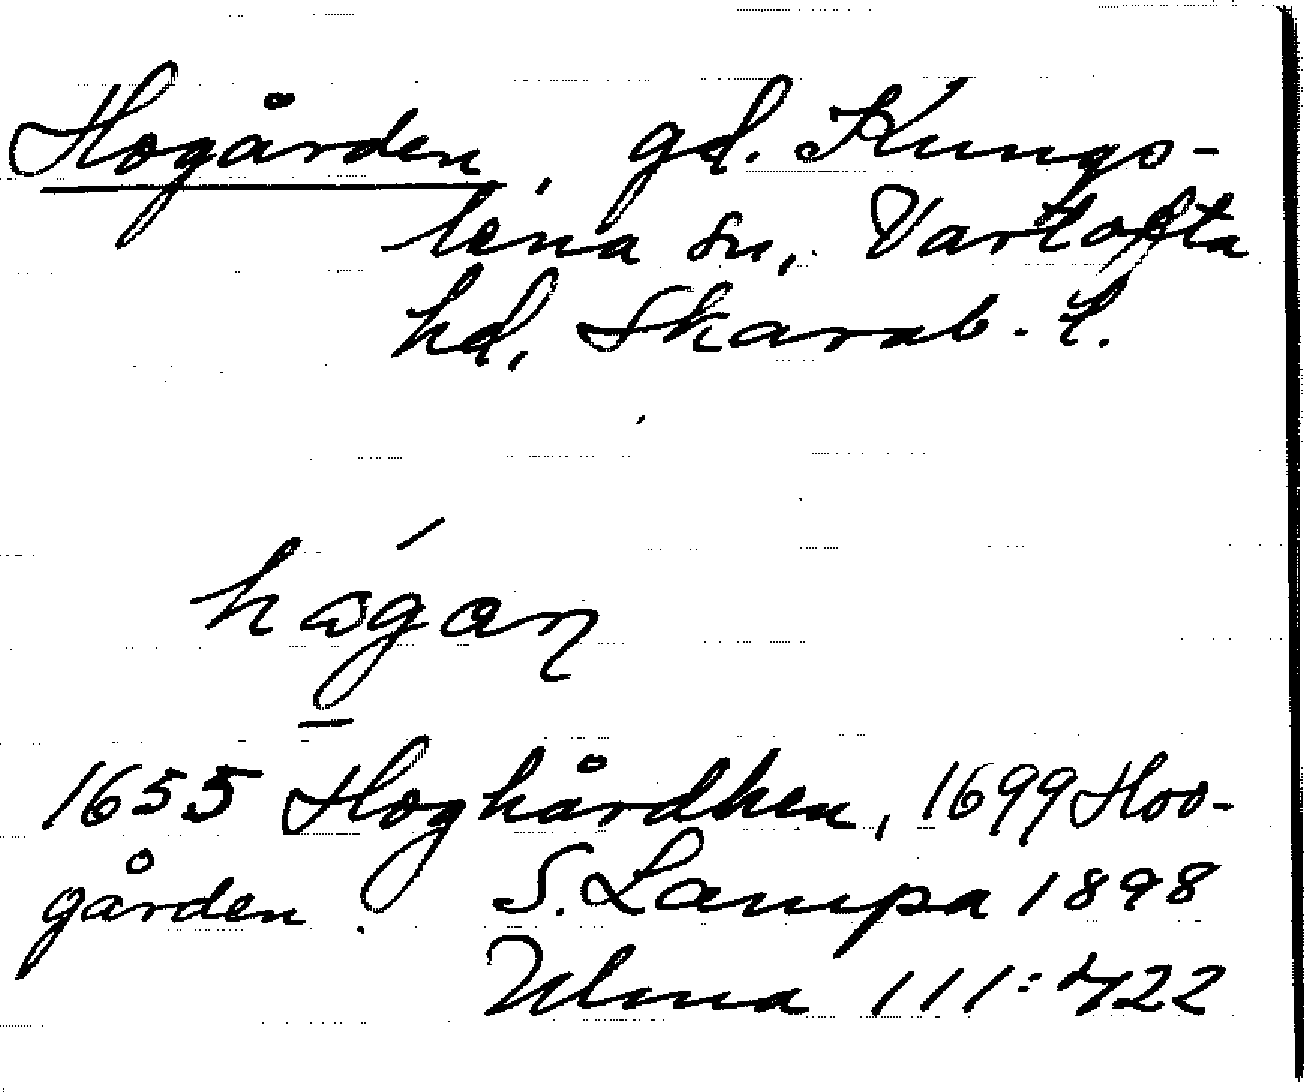 Hogården, gd. Kungs-
lena sn, Vartofta
hd, Skarab. l.
hågaɳ
1655 Hoghårdhen, 1699 Hoo-
gården. S. Lampa 1898
Ulma 111:422